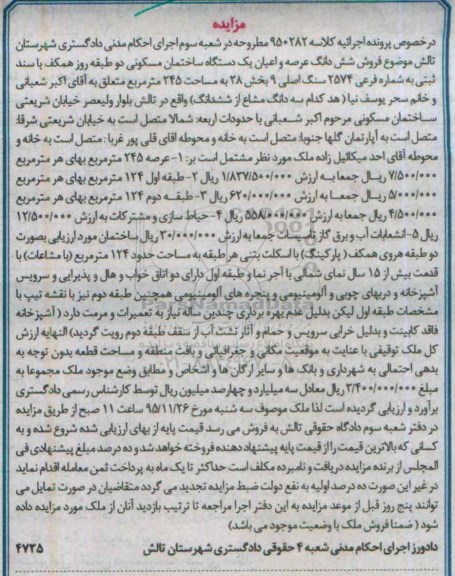 مزایده
در خصوص پرونده اجرائیه کلاسه ۹۵۰۲۸۲ مطروحه در شعبه سوم اجرای احکام مدنی دادگستری شهرستان
تالش موضوع فروش شش دانگ عرصه و اعیان یک دستگاه ساختمان مسکونی دو طبقه روز همکف با سند
ثبتی به شماره فرعی ۲۵۷۴ سنگ اصلی ۹ بخش ۲۸ به مساحت ۲۴۵ مترمربع متعلق به آقای اکبر شعبانی
و خانم سحر یوسف نیا ( هد کدام سه دانگ مشاع از ششدانگ) واقع در تالش بلوار ولیعصر خیابان شریعتی
ساختمان مسکونی مرحوم اکبر شعبانی با حدودات اربعه: شمالا متصل است به خیابان شریعتی شرقا:
متصل است به آپارتمان گلها جنوبا: متصل است به خانه و محوطه آقای قلی پور غربا : متصل است به خانه و
محوطه آقای احد میکائیل زاده ملک مورد نظر مشتمل است بر: ۱- عرصه ۲۴۵ مترمربع بهای هر مترمربع
۷/۵۰۰/۰۰۰ ریال جمعا به ارزش ۱/۸۳۷/۵۰۰/۰۰۰ ریال ۲- طبقه اول ۱۲۴ مترمربع بهای هر مترمربع
۵/۰۰۰/۰۰۰ ریال جمعا به ارزش ۶۲۰/۰۰۰/۰۰۰ ریال ۳- طبقه دوم ۱۲۴ مترمربع بهای هر مترمربع
۴/۵۰۰/۰۰۰ ریال جمعا به ارزش ۵۵۸/۰۰۰/۰۰۰ ریال ۴- حیاط سازی و مشترکات به ارزش ۱۲/۵۰۰
ریال ۵- انشعابات آب و برق گاز تاسیسات جمعا به ارزش ۳۰/۰۰۰/۰۰۰ ریال ساختمان مورد ارزیابی بصورت
دو طبقه روی همکف ( پارکینگ) با اسکلت بتنی هر طبقه به مساحت حدود ۱۲۴ مترمربع (با مشاعات) با
قدمت بیش از ۱۵ سال نمای شمالی با آجر نما و طبقه اول دارای دو اتاق خواب و هال و پذیرایی و سرویس
آشپزخانه و دربهای چوبی و آلومینیومی و پنجره های آلومینیومی همچنین طبقه دوم نیز با نقشه تیپ با
مشخصات طبقه اول لیکن بدلیل عدم بهره برداری چندین ساله نیاز به تعمیرات و مرمت دارد ( آشپزخانه
فاقد کابینت و بدلیل خرابی سرویس و حمام و آثار نشت آب از سقف طبقه دوم رویت گردید) النهایه ارزش
کل ملک توقیفی با عنایت به موقعیت مکانی و جغرافیایی و بافت منطقه و مساحت قطعه بدون توجه به
بدهی احتمالی به شهرداری و بانک ها و سایر ارگان ها و اشخاص و مطابق وضع موجود ملک مجموعا به
مبلغ ۳/۴۰۰/۰۰۰/۰۰۰ ریال معادل سه میلیارد و چهارصد میلیون ریال توسط کارشناس رسمی دادگستری
برآورد و ارزیابی گردیده است لذا ملک موصوف سه شنبه مورخ ۹۵/۱۱/۲۶ ساعت ۱۱ صبح از طریق مزایده
در دفتر شعبه سوم دادگاه حقوقی تالش به فروش می رسد قیمت پایه از بهای ارزیابی شده شروع شده و به
کسانی که بالاترین قیمت را از قیمت پایه پیشنهاد دهنده فروخته خواهد شد و ده درصد مبلغ پیشنهادی فی
المجلس از برنده مزایده دریافت و نامبرده مکلف است حداکثر تا یک ماه به پرداخت ثمن معامله اقدام نماید
در غیر این صورت ده درصد اولیه به نفع دولت ضبط مزایده تجدید می گردد متقاضیان در صورت تمایل می
توانند پنج روز قبل از موعد مزایده به این دفتر اجرا مراجعه تا ترتیب بازدید آنان از ملک مورد مزایده داده
شود ( ضمنا فروش ملک با وضعیت موجود می باشد)
دادورز اجرای احکام مدنی شعبه ۴ حقوقی دادگستری شهرستان تالش ۴۷۳۵